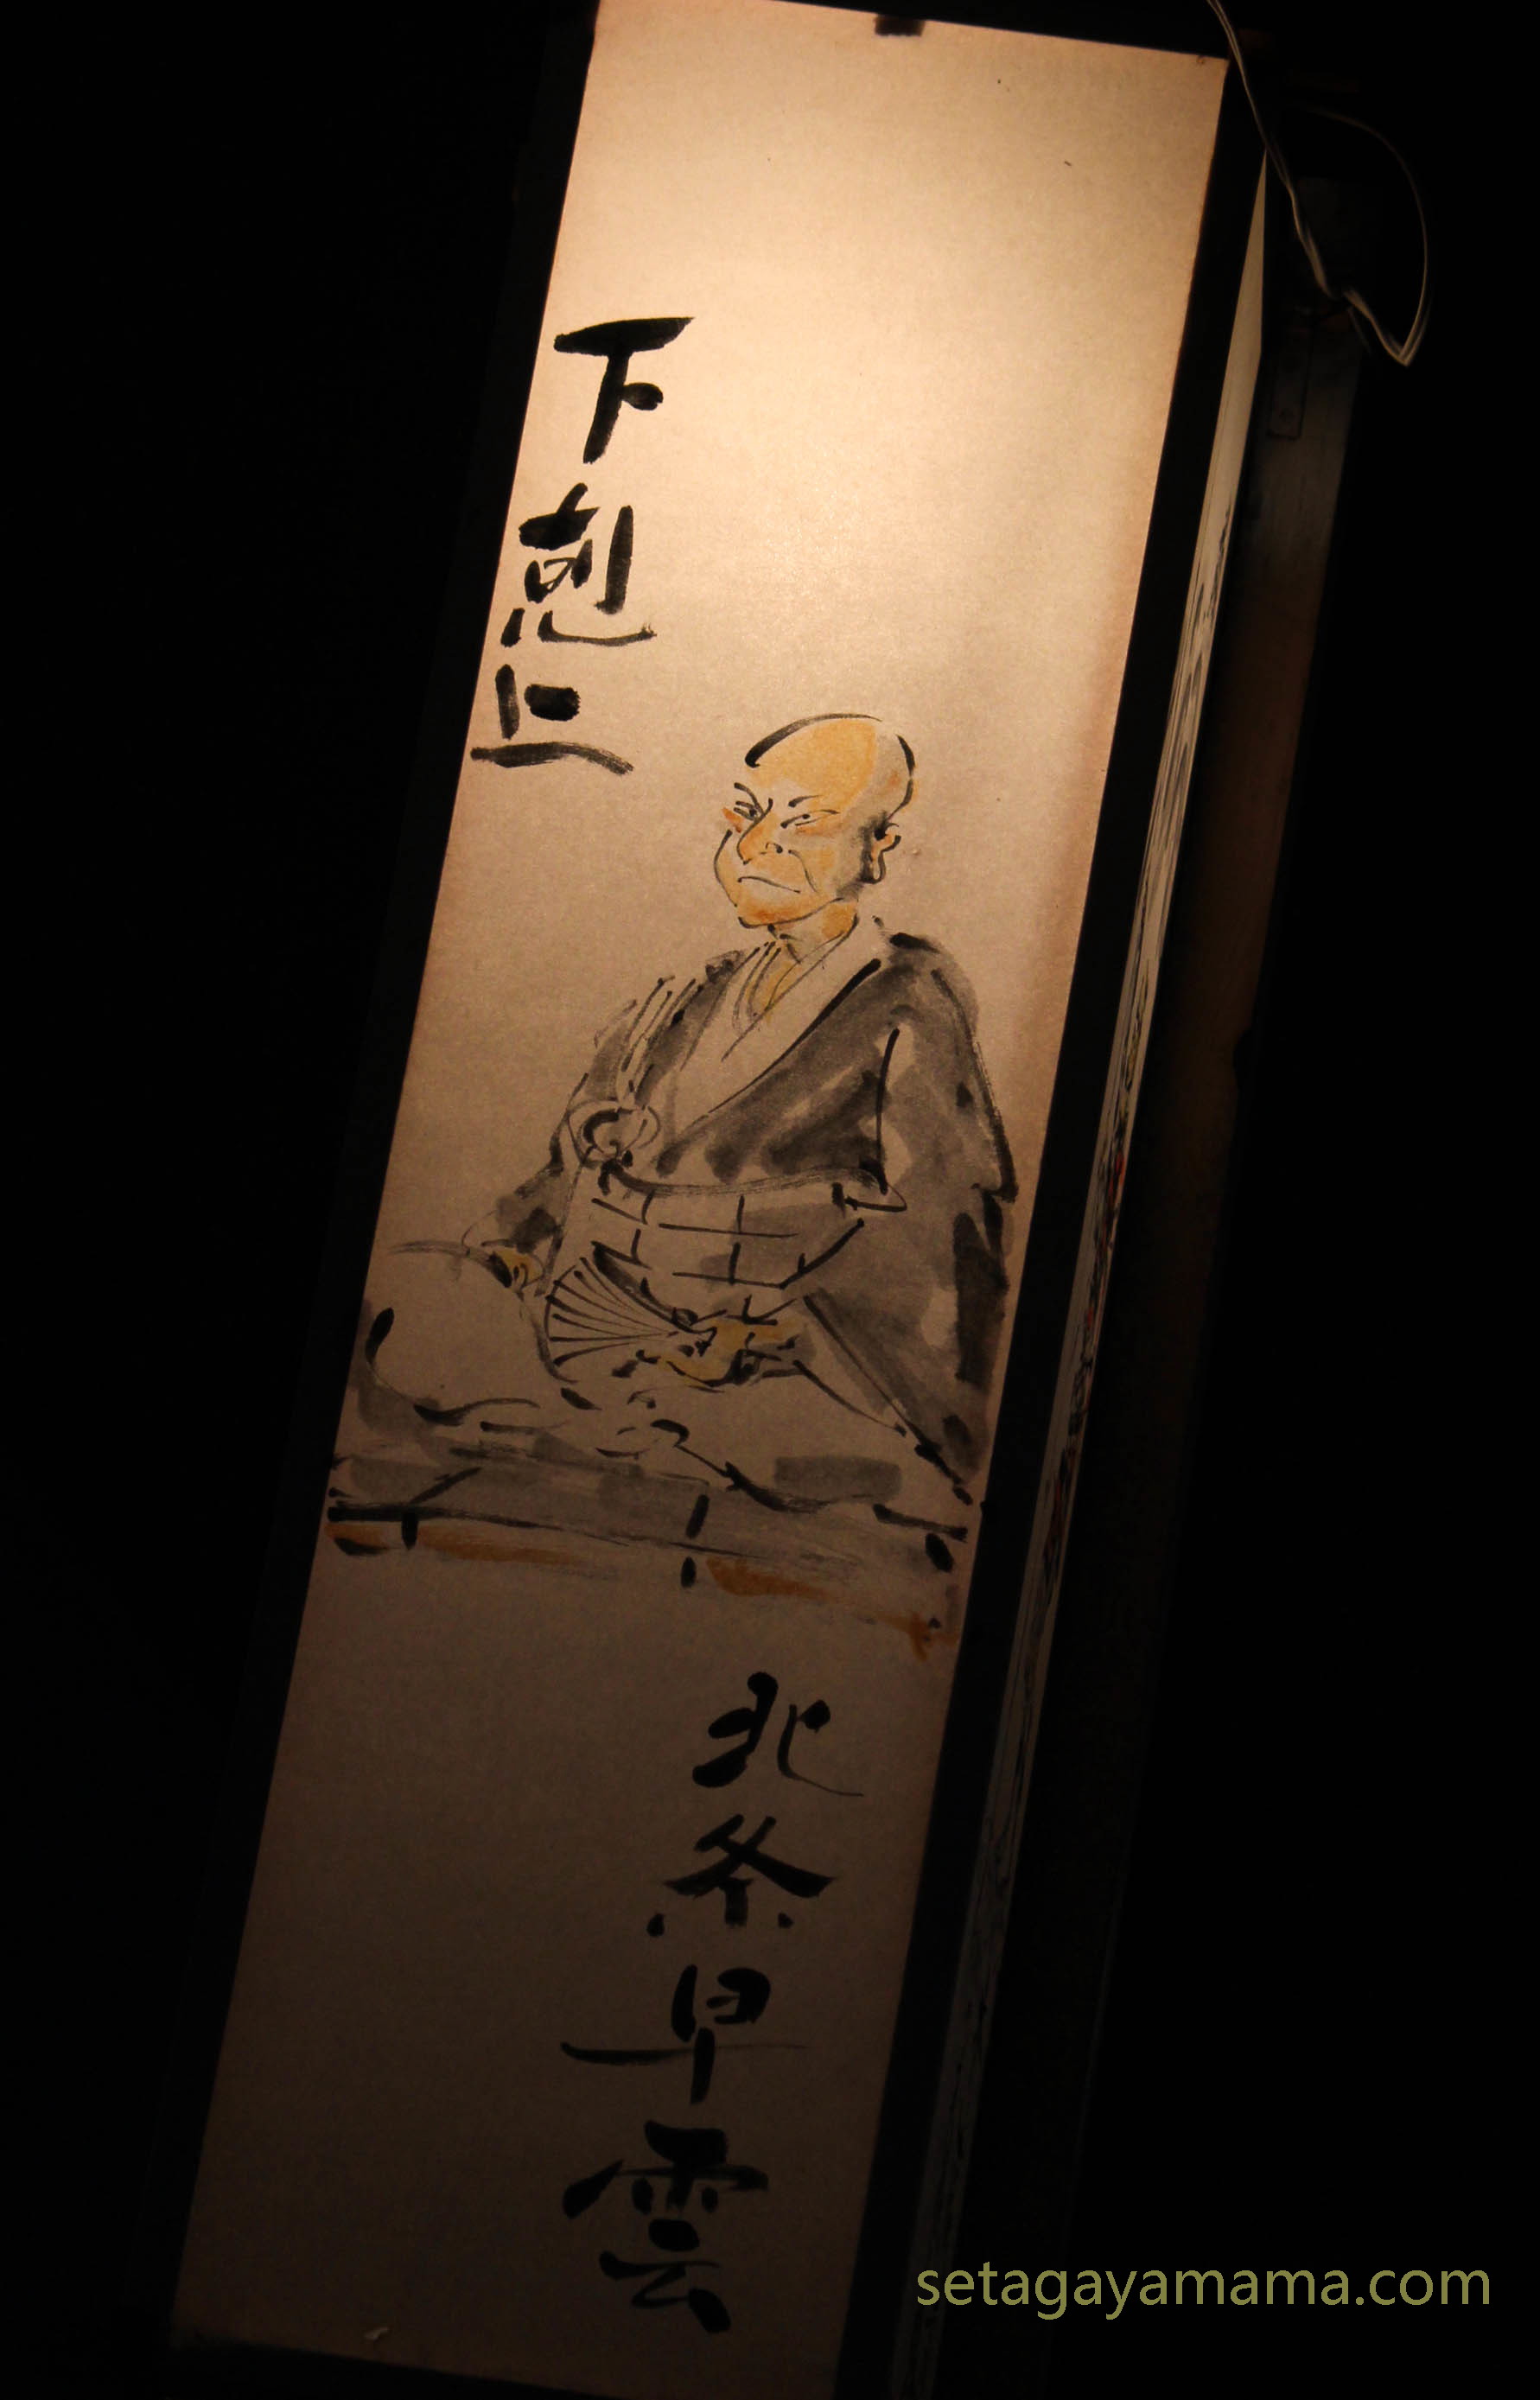 下剋上
北条早雲
setagayamama.com